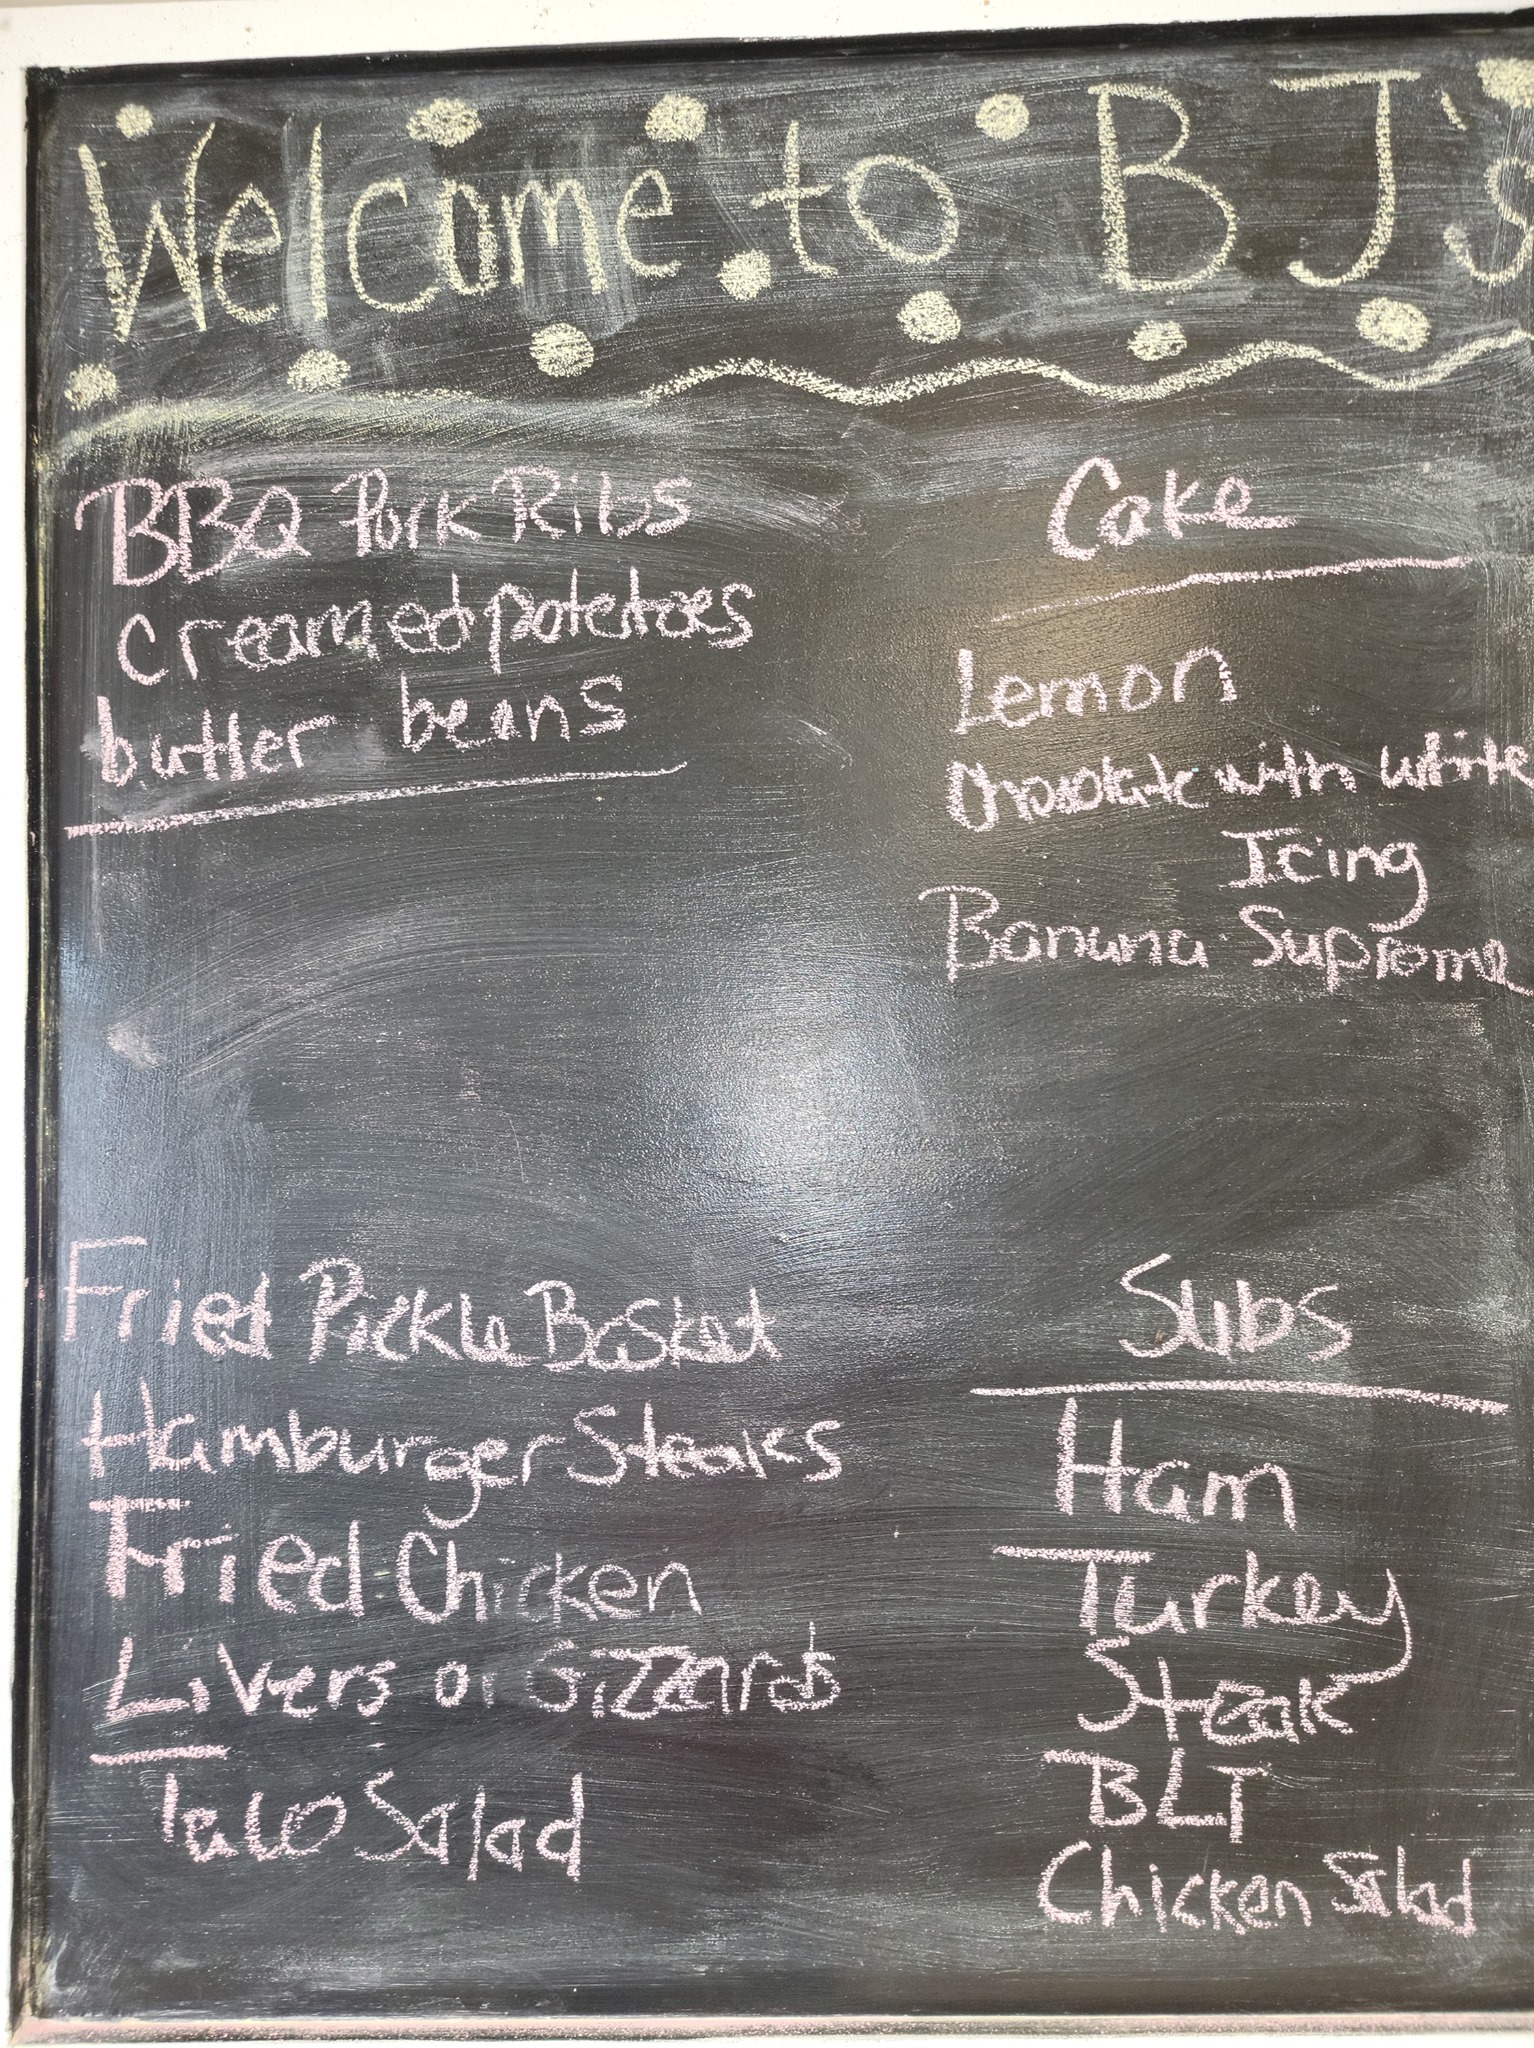 Welcome to BJ's
BBQ Pork Ribs
creamed potetoes
butter beans
Cake
Lemon
Chocolate with white
Icing
Banana Supreme
Fried Pickle Basket
Hamburger Steaks
Fried Chicken
Livers or Gizzards
Taco Salad
Subs
Ham
Turkey
Steak
BLT
Chicken Salad